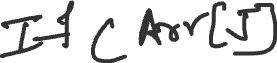 If ( Arr[J]